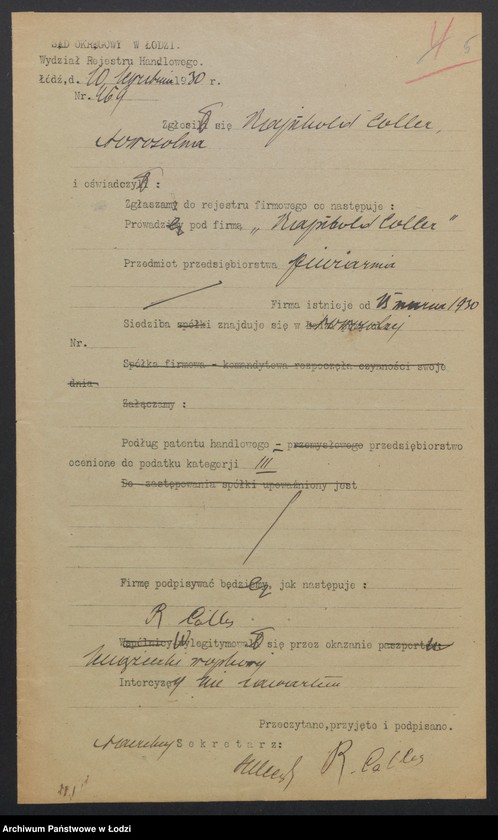 4 5
SĄD OKRĘGOWY W ŁODZI.
Wydział Rejestru Handlowego.
Łódź, d. 10 Września 1930 r.
Nr. 469
Zgłosił się Rajnhold Coller,
Nowosolna
i oświadczył :
Zgłaszam do rejestru firmowego co następuje :
Prowadzę pod firmą „Rajnhold Coller"
Przedmiot przedsiębiorstwa piwiarnia
Firma istnieje od 15 marca 1930
Siedziba spółki znajduje się w Nowosolnej
Nr.
Spółka firmowa - komandytowa rozpoczęła czynności swoje
dnia
Załączamy :
Podług patentu handlowego - przemysłowego przedsiębiorstwo
ocenione do podatku kategorji III
Do zastępowania spółki upoważniony jest
Firmę podpisywać będę, jak następuje :
R Coller
Wspólnicy Wylegitymował się przez okazanie paszportu
książeczki wojskowej
Intercyzę nie zawarłem
Przeczytano, przyjęto i podpisano.
Sekretarz:
R. Coller
Archiwum Państwowe w Łodzi